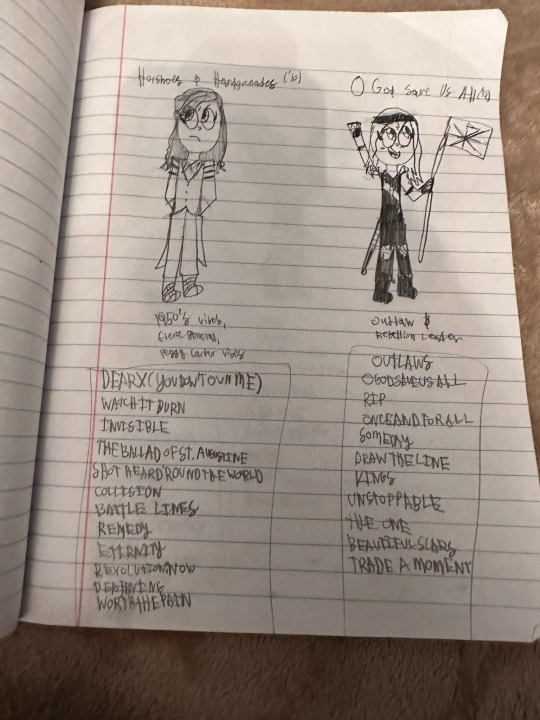 Horshoes & Handgrenades ('10)
O God Save Us All
1950's vibes,
fierce general,
peggy carter vibes
DEAR X (YOU DON'T OWN ME)
WATCH IT BURN
INVISIBLE
THE BALLAD OF ST. AUGUSTINE
SHOT HEARD 'ROUND THE WORLD
COLLISION
BATTLE LINES
REMEDY
ETERNITY
REVOLUTION NOW
DEAFENING
WORTH THE PAIN
Outlaw &
Rebellion Leader
OUTLAWS
O GOD SAVE US ALL
RIP
ONCE AND FOR ALL
SOMEDAY
DRAW THE LINE
KINGS
UNSTOPPABLE
THE ONE
BEAUTIFUL SCARS
TRADE A MOMENT